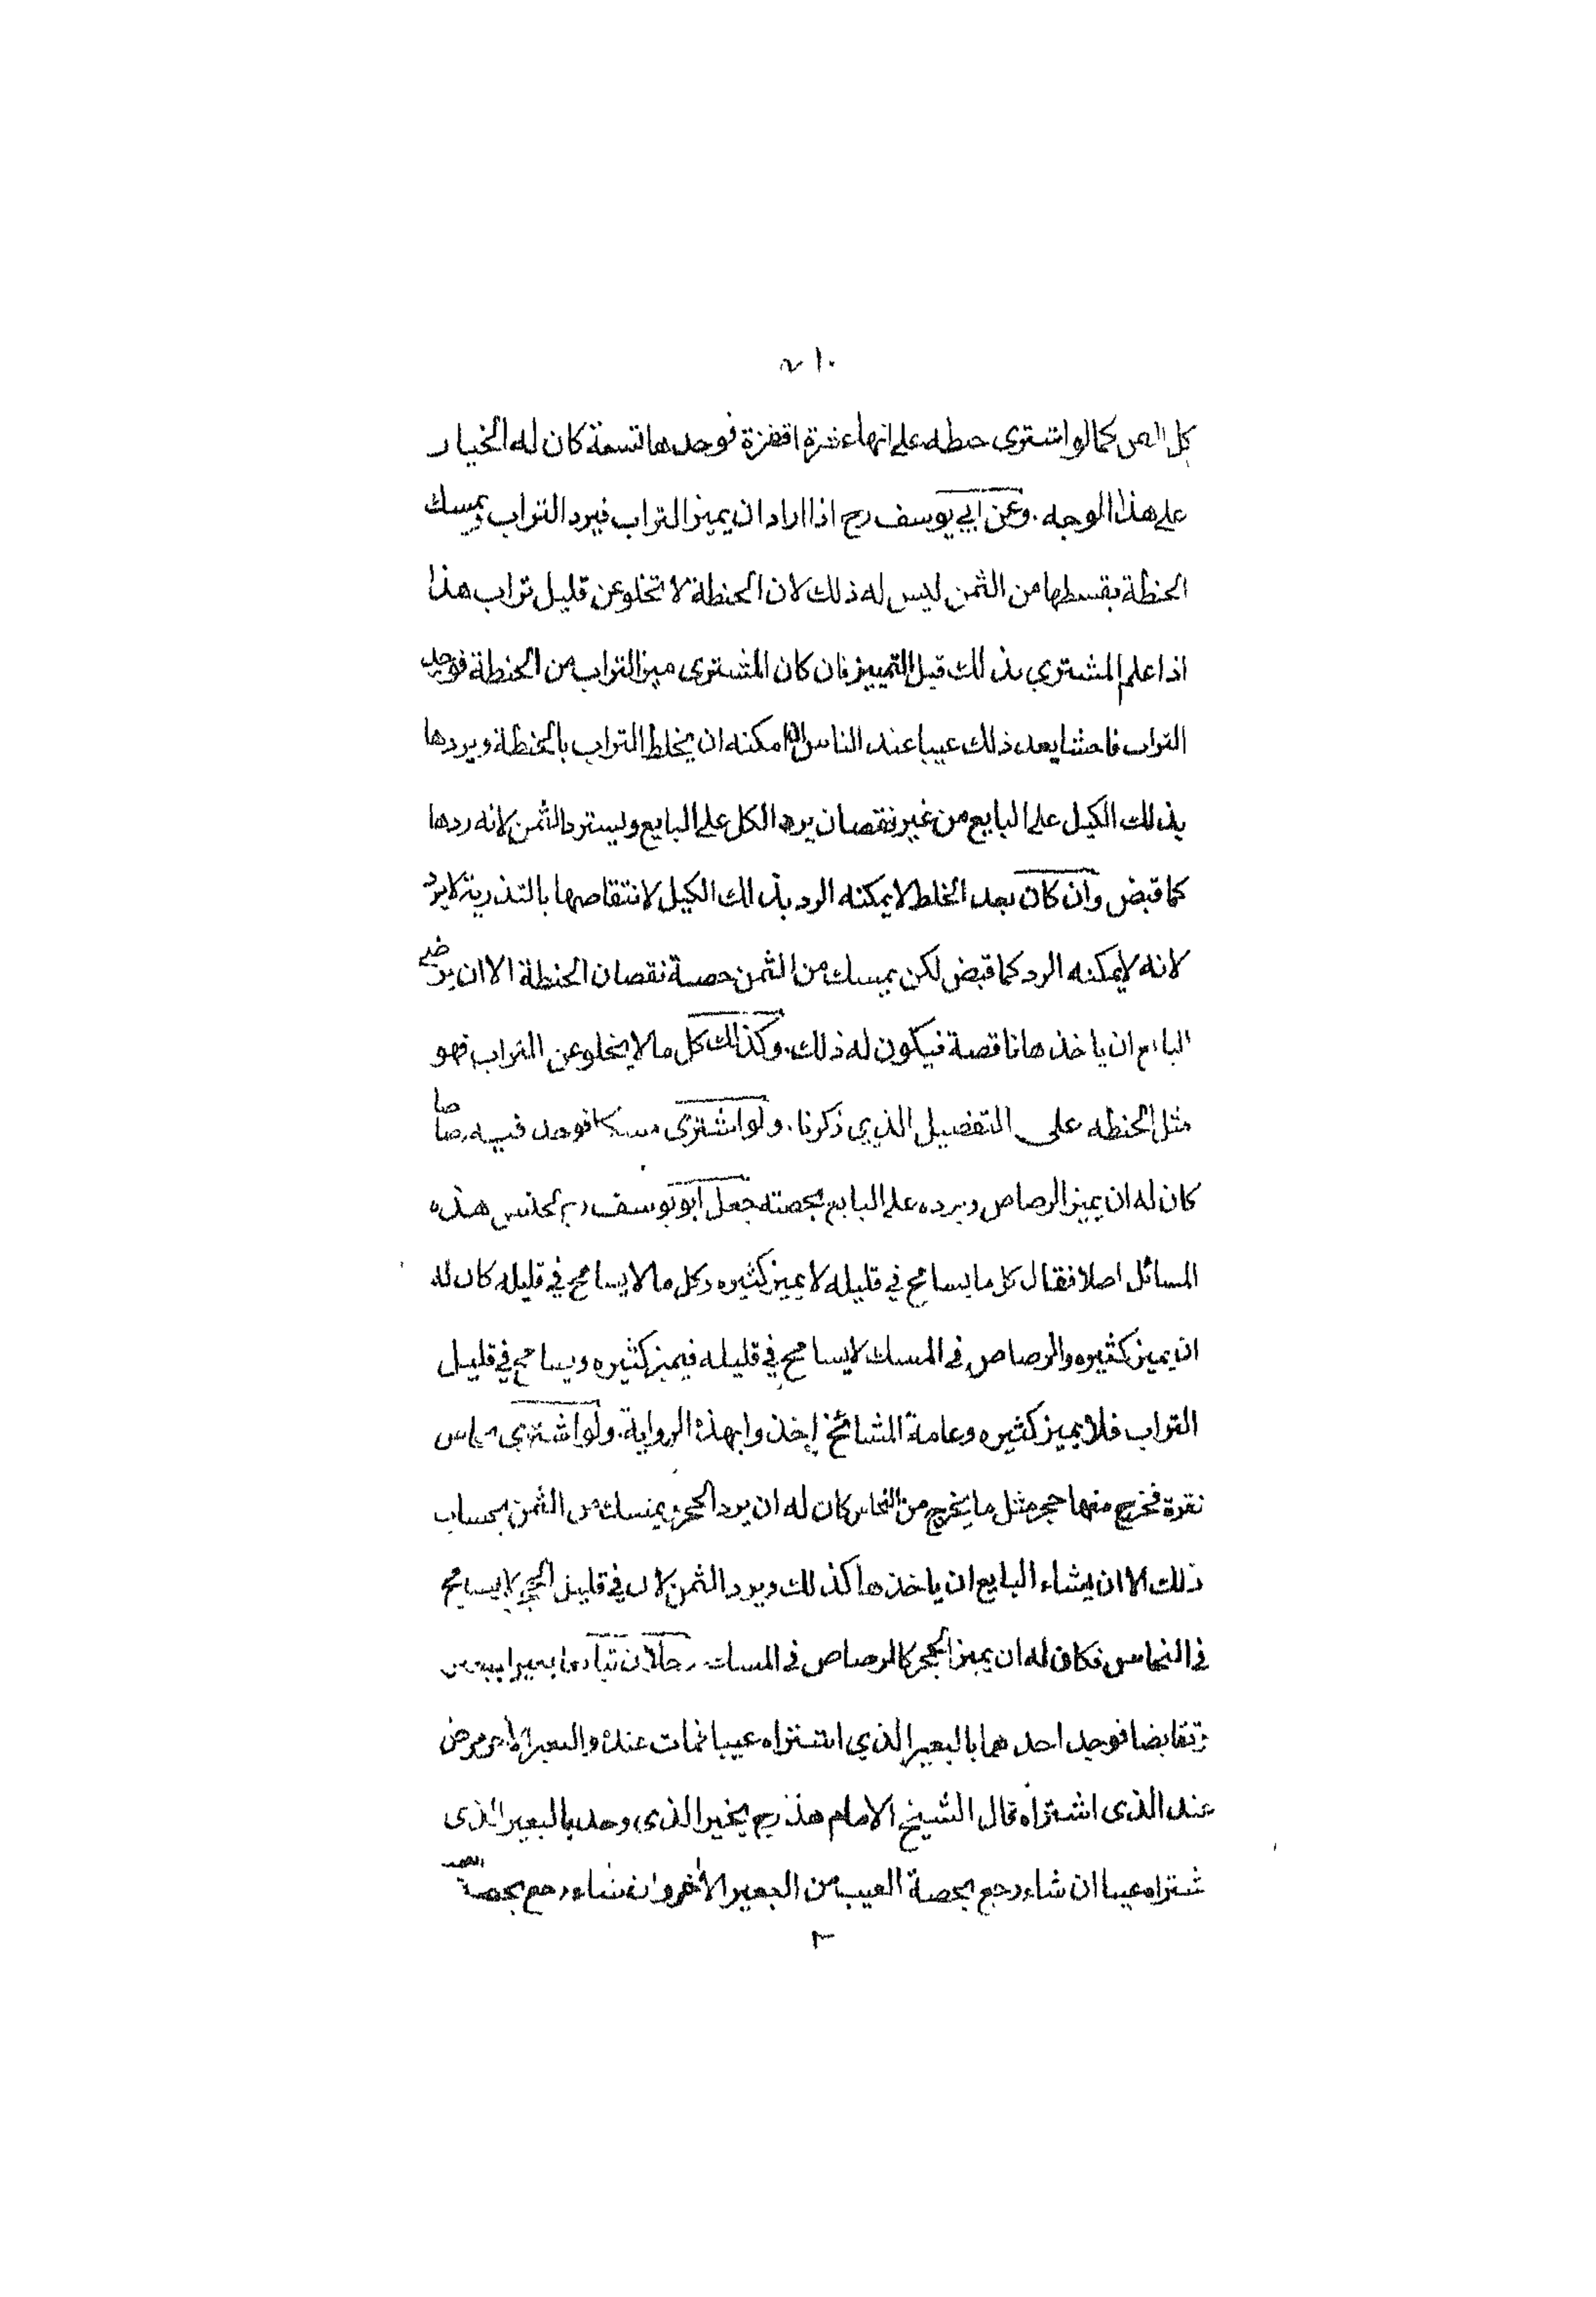 كل الثمن كما لو اشترى حنطه على انها عشرة اقفزة فوجدها تسعة كان له الخيار
على هذا الوجه . وعن ابي يوسف رح اذا اراد ان يميز التراب فيرد التراب ويمسك
الحنطة بقسطها من الثمن ليس له ذلك لان الحنطة لا تخلو عن قليل تراب هذا
اذا علم المشتري بذلك قبل التمييز فان كان المشترى ميز التراب من الحنطة فوجد
التراب فاحشا يعد ذلك عيبا عند الناس ان امكنه ان يخلط التراب بالحنطة ويردها
بذلك الكيل على البايع من غير نقصان يرد الكل على البايع ويسترد الثمن لانه ردها
كما قبض وان كان بعد الخلط لا يمكنه الرد بذلك الكيل لانتقاصها بالتذرية لا يرد
لانه لا يمكنه الرد كما قبض لكن يمسك من الثمن حصة نقصان الحنطة الا ان يرضى
البايع ان ياخذها ناقصة فيكون له ذلك . وكذلك كل ما لا يخلو عن التراب فهو
مثل الحنطه على التفصيل الذي ذكرنا . ولو اشترى مسكا فوجد فيه رصاصا
كان له ان يميز الرصاص ويرده على البايع بحصته جعل ابو يوسف رح لجنس هذه
المسائل اصلا فقال كل ما يسامح في قليله لا يميز كثيره وكل ما لا يسامح في قليله كان له
ان يميز كثيره والرصاص في المسك لا يسامح في قليله فيميز كثيره ويسامح في قليل
التراب فلا يميز كثيره وعامة المشائخ اخذوا بهذه الرواية . ولو اشترى من
نقرة فخرج منها حجر مثل ما يخرج من النحاس كان له ان يرد الحجر ويمسك من الثمن بحساب
ذلك الا ان يشاء البايع ان ياخذها كذلك ويرد الثمن لان في قليل الحجر لا يسامح
في النحاس فكان له ان يميز الحجر كالرصاص في المسك رجلان تبايعا بعيرا ببعير
وتقابضا فوجد احدهما بالبعير الذي اشتراه عيبا فمات عنده والبعير الاخر مرض
عند الذى اشتراه قال الشيخ الامام هذا رح يخير الذي وجد بالبعير الذى
شتراه عيبا ان شاء رجع بحصة العيب من البعير الاخر وان شاء رجع بحصة